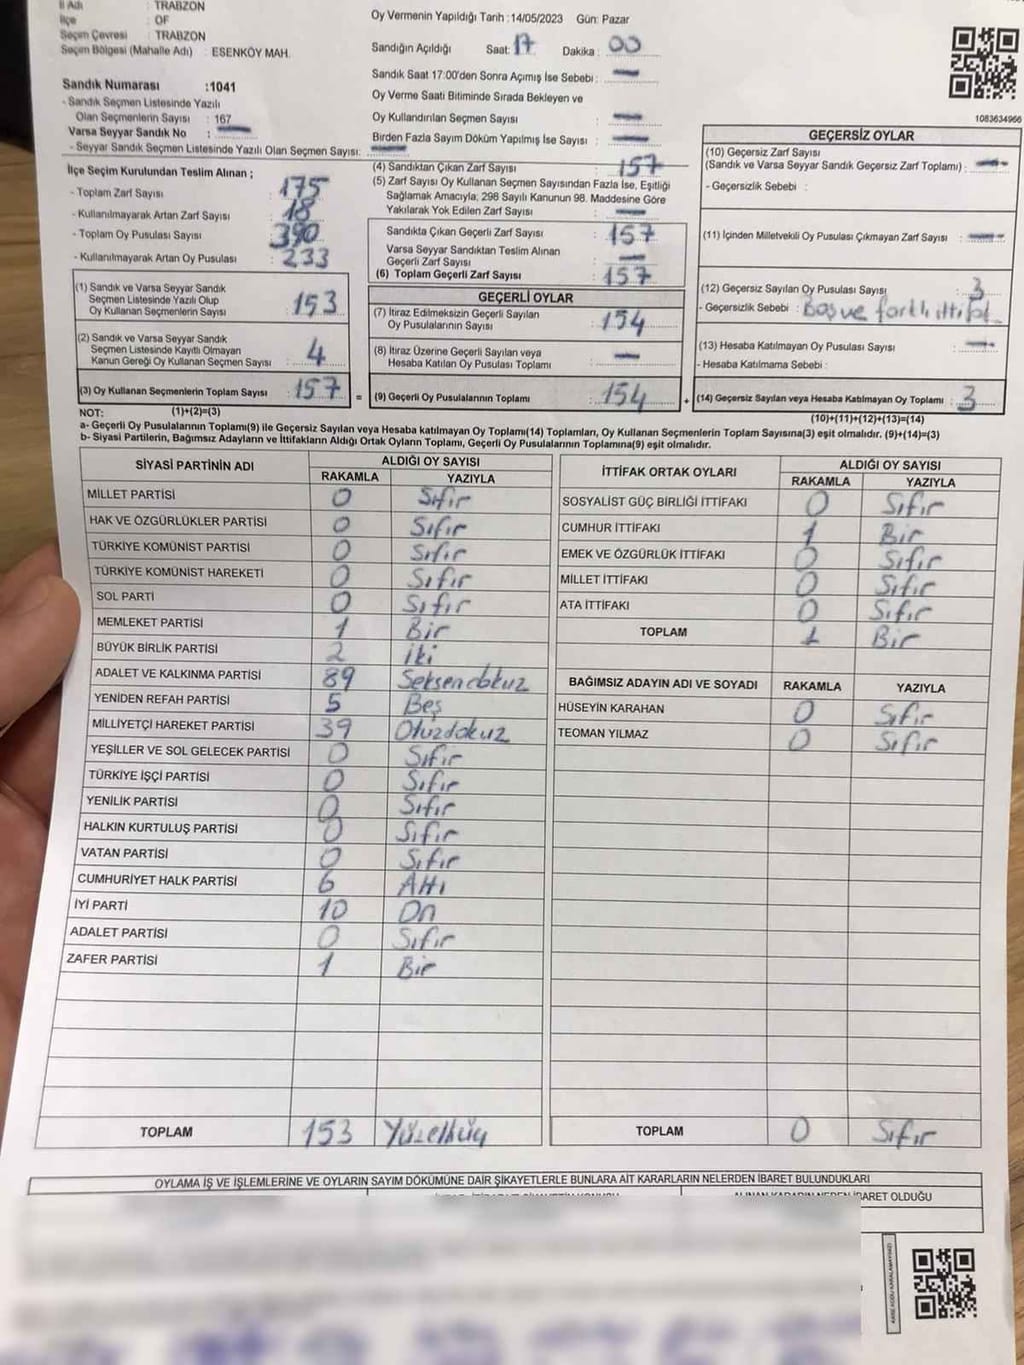 İl Adı : TRABZON
İlçe : OF
Seçim Çevresi : TRABZON
Seçim Bölgesi (Mahalle Adı) : ESENKÖY MAH.
Sandık Numarası :1041
- Sandık Seçmen Listesinde Yazılı
Olan Seçmenlerin Sayısı : 167
Varsa Seyyar Sandık No :
- Seyyar Sandık Seçmen Listesinde Yazılı Olan Seçmen Sayısı:
İlçe Seçim Kurulundan Teslim Alınan ;
- Toplam Zarf Sayısı : 175
- Kullanılmayarak Artan Zarf Sayısı : 18
- Toplam Oy Pusulası Sayısı : 390
- Kullanılmayarak Artan Oy Pusulası : 233
(1) Sandık ve Varsa Seyyar Sandık
Seçmen Listesinde Yazılı Olup
Oy Kullanan Seçmenlerin Sayısı : 153
(2) Sandık ve Varsa Seyyar Sandık
Seçmen Listesinde Kayıtlı Olmayan
Kanun Gereği Oy Kullanan Seçmen Sayısı : 4
(3) Oy Kullanan Seçmenlerin Toplam Sayısı : 157
Oy Vermenin Yapıldığı Tarih : 14/05/2023 Gün: Pazar
Sandığın Açıldığı Saat: 17 Dakika : 00
Sandık Saat 17:00'den Sonra Açımış İse Sebebi :
Oy Verme Saati Bitiminde Sırada Bekleyen ve
Oy Kullandırılan Seçmen Sayısı :
Birden Fazla Sayım Döküm Yapılmış İse Sayısı :
(4) Sandıktan Çıkan Zarf Sayısı : 157
(5) Zarf Sayısı Oy Kullanan Seçmen Sayısından Fazla İse, Eşitliği
Sağlamak Amacıyla, 298 Sayılı Kanunun 98. Maddesine Göre
Yakılarak Yok Edilen Zarf Sayısı :
Sandıkta Çıkan Geçerli Zarf Sayısı : 157
Varsa Seyyar Sandıktan Teslim Alınan
Geçerli Zarf Sayısı :
(6) Toplam Geçerli Zarf Sayısı : 157
GEÇERLİ OYLAR
(7) İtiraz Edilmeksizin Geçerli Sayılan
Oy Pusulalarının Sayısı : 154
(8) İtiraz Üzerine Geçerli Sayılan veya
Hesaba Katılan Oy Pusulası Toplamı :
= (9) Geçerli Oy Pusulalarının Toplamı : 154
1083634966
GEÇERSİZ OYLAR
(10) Geçersiz Zarf Sayısı
(Sandık ve Varsa Seyyar Sandık Geçersiz Zarf Toplamı) :
- Geçersizlik Sebebi :
(11) İçinden Milletvekili Oy Pusulası Çıkmayan Zarf Sayısı :
(12) Geçersiz Sayılan Oy Pusulası Sayısı : 3
- Geçersizlik Sebebi : Boş ve farklı ittifak
(13) Hesaba Katılmayan Oy Pusulası Sayısı :
- Hesaba Katılmama Sebebi :
+ (14) Geçersiz Sayılan veya Hesaba Katılmayan Oy Toplamı : 3
NOT: (1)+(2)=(3)
(10)+(11)+(12)+(13)=(14)
a- Geçerli Oy Pusulalarının Toplamı(9) ile Geçersiz Sayılan veya Hesaba katılmayan Oy Toplamı(14) Toplamları, Oy Kullanan Seçmenlerin Toplam Sayısına(3) eşit olmalıdır. (9)+(14)=(3)
b- Siyasi Partilerin, Bağımsız Adayların ve İttifakların Aldığı Ortak Oyların Toplamı, Geçerli Oy Pusulalarının Toplamına(9) eşit olmalıdır.
SİYASİ PARTİNİN ADI ALDIĞI OY SAYISI
RAKAMLA YAZIYLA
MİLLET PARTİSİ 0 Sıfır
HAK VE ÖZGÜRLÜKLER PARTİSİ 0 Sıfır
TÜRKİYE KOMÜNİST PARTİSİ 0 Sıfır
TÜRKİYE KOMÜNİST HAREKETİ 0 Sıfır
SOL PARTİ 0 Sıfır
MEMLEKET PARTİSİ 1 Bir
BÜYÜK BİRLİK PARTİSİ 2 İki
ADALET VE KALKINMA PARTİSİ 89 Seksendokuz
YENİDEN REFAH PARTİSİ 5 Beş
MİLLİYETÇİ HAREKET PARTİSİ 39 Otuzdokuz
YEŞİLLER VE SOL GELECEK PARTİSİ 0 Sıfır
TÜRKİYE İŞÇİ PARTİSİ 0 Sıfır
YENİLİK PARTİSİ 0 Sıfır
HALKIN KURTULUŞ PARTİSİ 0 Sıfır
VATAN PARTİSİ 0 Sıfır
CUMHURİYET HALK PARTİSİ 6 Altı
İYİ PARTİ 10 On
ADALET PARTİSİ 0 Sıfır
ZAFER PARTİSİ 1 Bir
TOPLAM 153 Yüzelliüç
İTTİFAK ORTAK OYLARI ALDIĞI OY SAYISI
RAKAMLA YAZIYLA
SOSYALİST GÜÇ BİRLİĞİ İTTİFAKI 0 Sıfır
CUMHUR İTTİFAKI 1 Bir
EMEK VE ÖZGÜRLÜK İTTİFAKI 0 Sıfır
MİLLET İTTİFAKI 0 Sıfır
ATA İTTİFAKI 0 Sıfır
TOPLAM 1 Bir
BAĞIMSIZ ADAYIN ADI VE SOYADI RAKAMLA YAZIYLA
HÜSEYİN KARAHAN 0 Sıfır
TEOMAN YILMAZ 0 Sıfır
TOPLAM 0 Sıfır
OYLAMA İŞ VE İŞLEMLERİNE VE OYLARIN SAYIM DÖKÜMÜNE DAİR ŞİKAYETLERLE BUNLARA AİT KARARLARIN NELERDEN İBARET BULUNDUKLARI
İBARET OLDUĞU